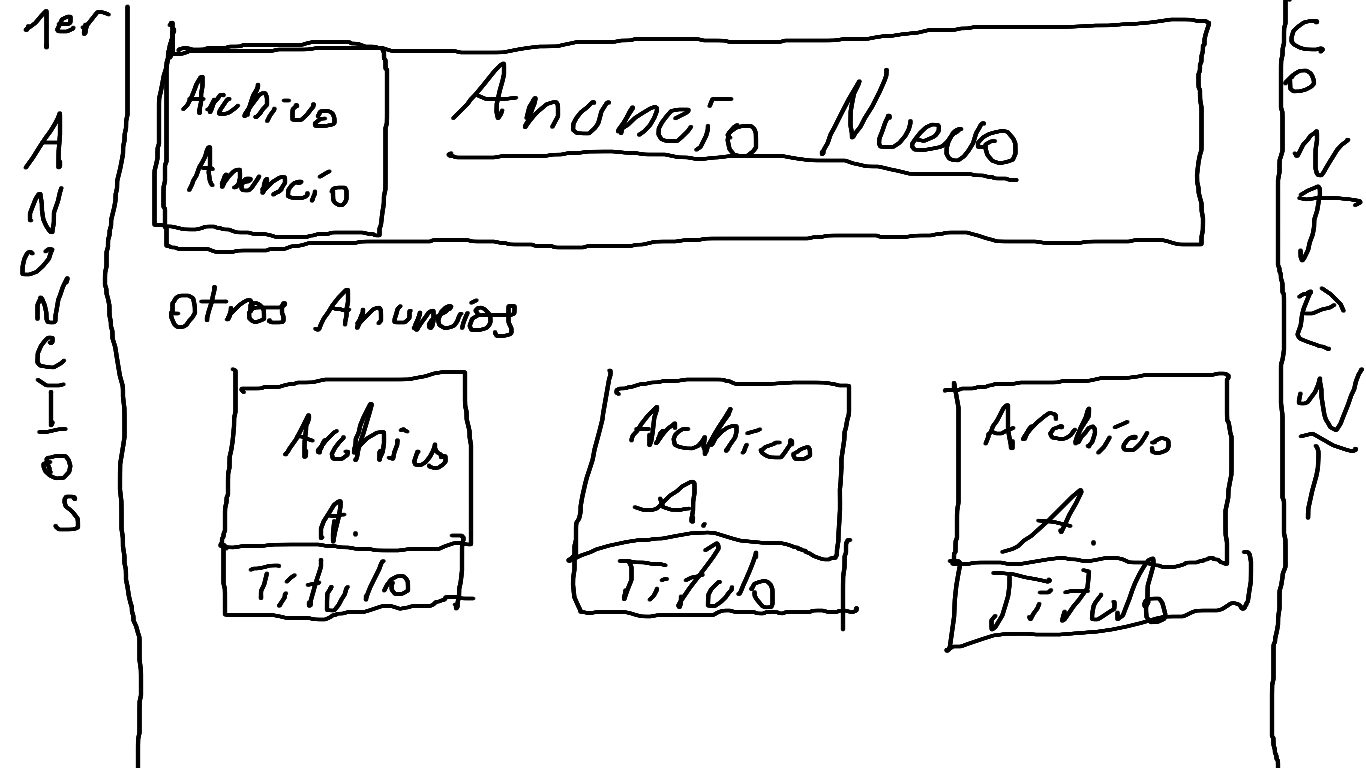 1er
ANUNCIOS
Archivo
Anuncio
Anuncio Nuevo
Otros Anuncios
Archivo
A.
Titulo
Archivo
A.
Título
Archivo
A.
Titulo
CONTENT